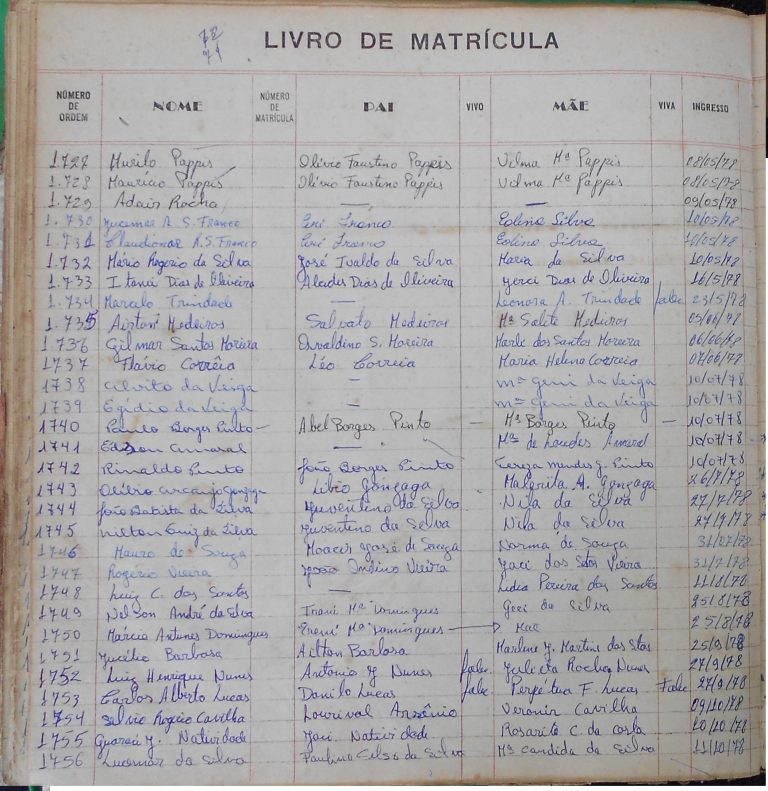 72
71
LIVRO DE MATRÍCULA
NÚMERO DE ORDEM NOME NÚMERO DE MATRÍCULA PAI VIVO MÃE VIVA INGRESSO
1727 Murilo Pappis Olívio Faustino Pappis Vilma Mª Pappis 08/05/78
1.728 Maurício Pappis Olívio Faustino Pappis Vilma Mª Pappis 08/05/78
1.729 Adair Rocha — — 09/05/78
1.730 Jucemar A. S. Franco Franco Eolina Silva 10/05/78
1.731 Claudiomar A. S. Franco Franco Eolina Silva 10/05/78
1.732 Mário Rogerio da Silva José Ivaldo da Silva Maria da Silva 10/05/78
1.733 Itamí Dias de Oliveira Alcides Dias de Oliveira Jerci Dias de Oliveira 16/5/78
1.734 Marcelo Trindade — Leonora A. Trindade falec 23/5/78
1.735 Airton Medeiros Salvato Medeiros Mª Salete Medeiros 05/06/78
1.736 Gilmar Santos Moreira Osvaldino S. Moreira Marle dos Santos Moreira 06/06/78
1737 Flávio Corrêia Léo Correia Maria Helena Correia 07/06/78
1738 da Veiga — mª Geni da Veiga 10/07/78
1739 Egídio da Veiga — mª Geni da Veiga 10/07/78
1740 Paulo Borges Pinto — Abel Borges Pinto — Mª Borges Pinto — 10/07/78
1741 Edson Amaral — Mª de Lourdes Amaral 10/07/78
1742 Rinaldo Pinto João Borges Pinto Tereza Mendes G. Pinto 10/07/78
1743 Olívio Arcanjo Gonzaga Líbio Gonzaga Margarita A. Gonzaga 26/7/78
1744 João Batista da Silva Juventino da Silva Nila da Silva 27/7/78
1745 Nilton Luiz da Silva Juventino da Silva Nila da Silva 27/7/78
1746 Mauro de Souza Moacir José de Souza Norma de Souza 31/07/78
1747 Rogério Vieira João Vieira Jaci dos Stos Vieira 31/7/78
1748 Luiz C. dos Santos — Lidia Pereira dos Santos 11/8/78
1749 Nelson André da Silva Ireni Mª Domingues Geci da Silva 25/8/78
1750 Marcia Antunes Domingues Ereni Mª Domingues Mãe 25/8/78
1751 Jucélio Barbosa Ailton Barbosa Marlene J. Martins dos Stos 25/9/78
1752 Luiz Henrique Nunes Antonio J Nunes falec Julieta Rocha Nunes 27/9/78
1753 Carlos Alberto Lucas Danilo Lucas falec Perpétua F. Lucas Falec 27/9/78
1754 Silvio Rogério Cavilha Lourival Arsênio Veronir Cavilha 09/10/78
1755 Guaraci J. Natividade Jaci Natividade Rosarita C. da Costa 10/10/78
1756 Lucemar da Silva Paulino Celso da Silva Mª Candida da Silva 11/10/78